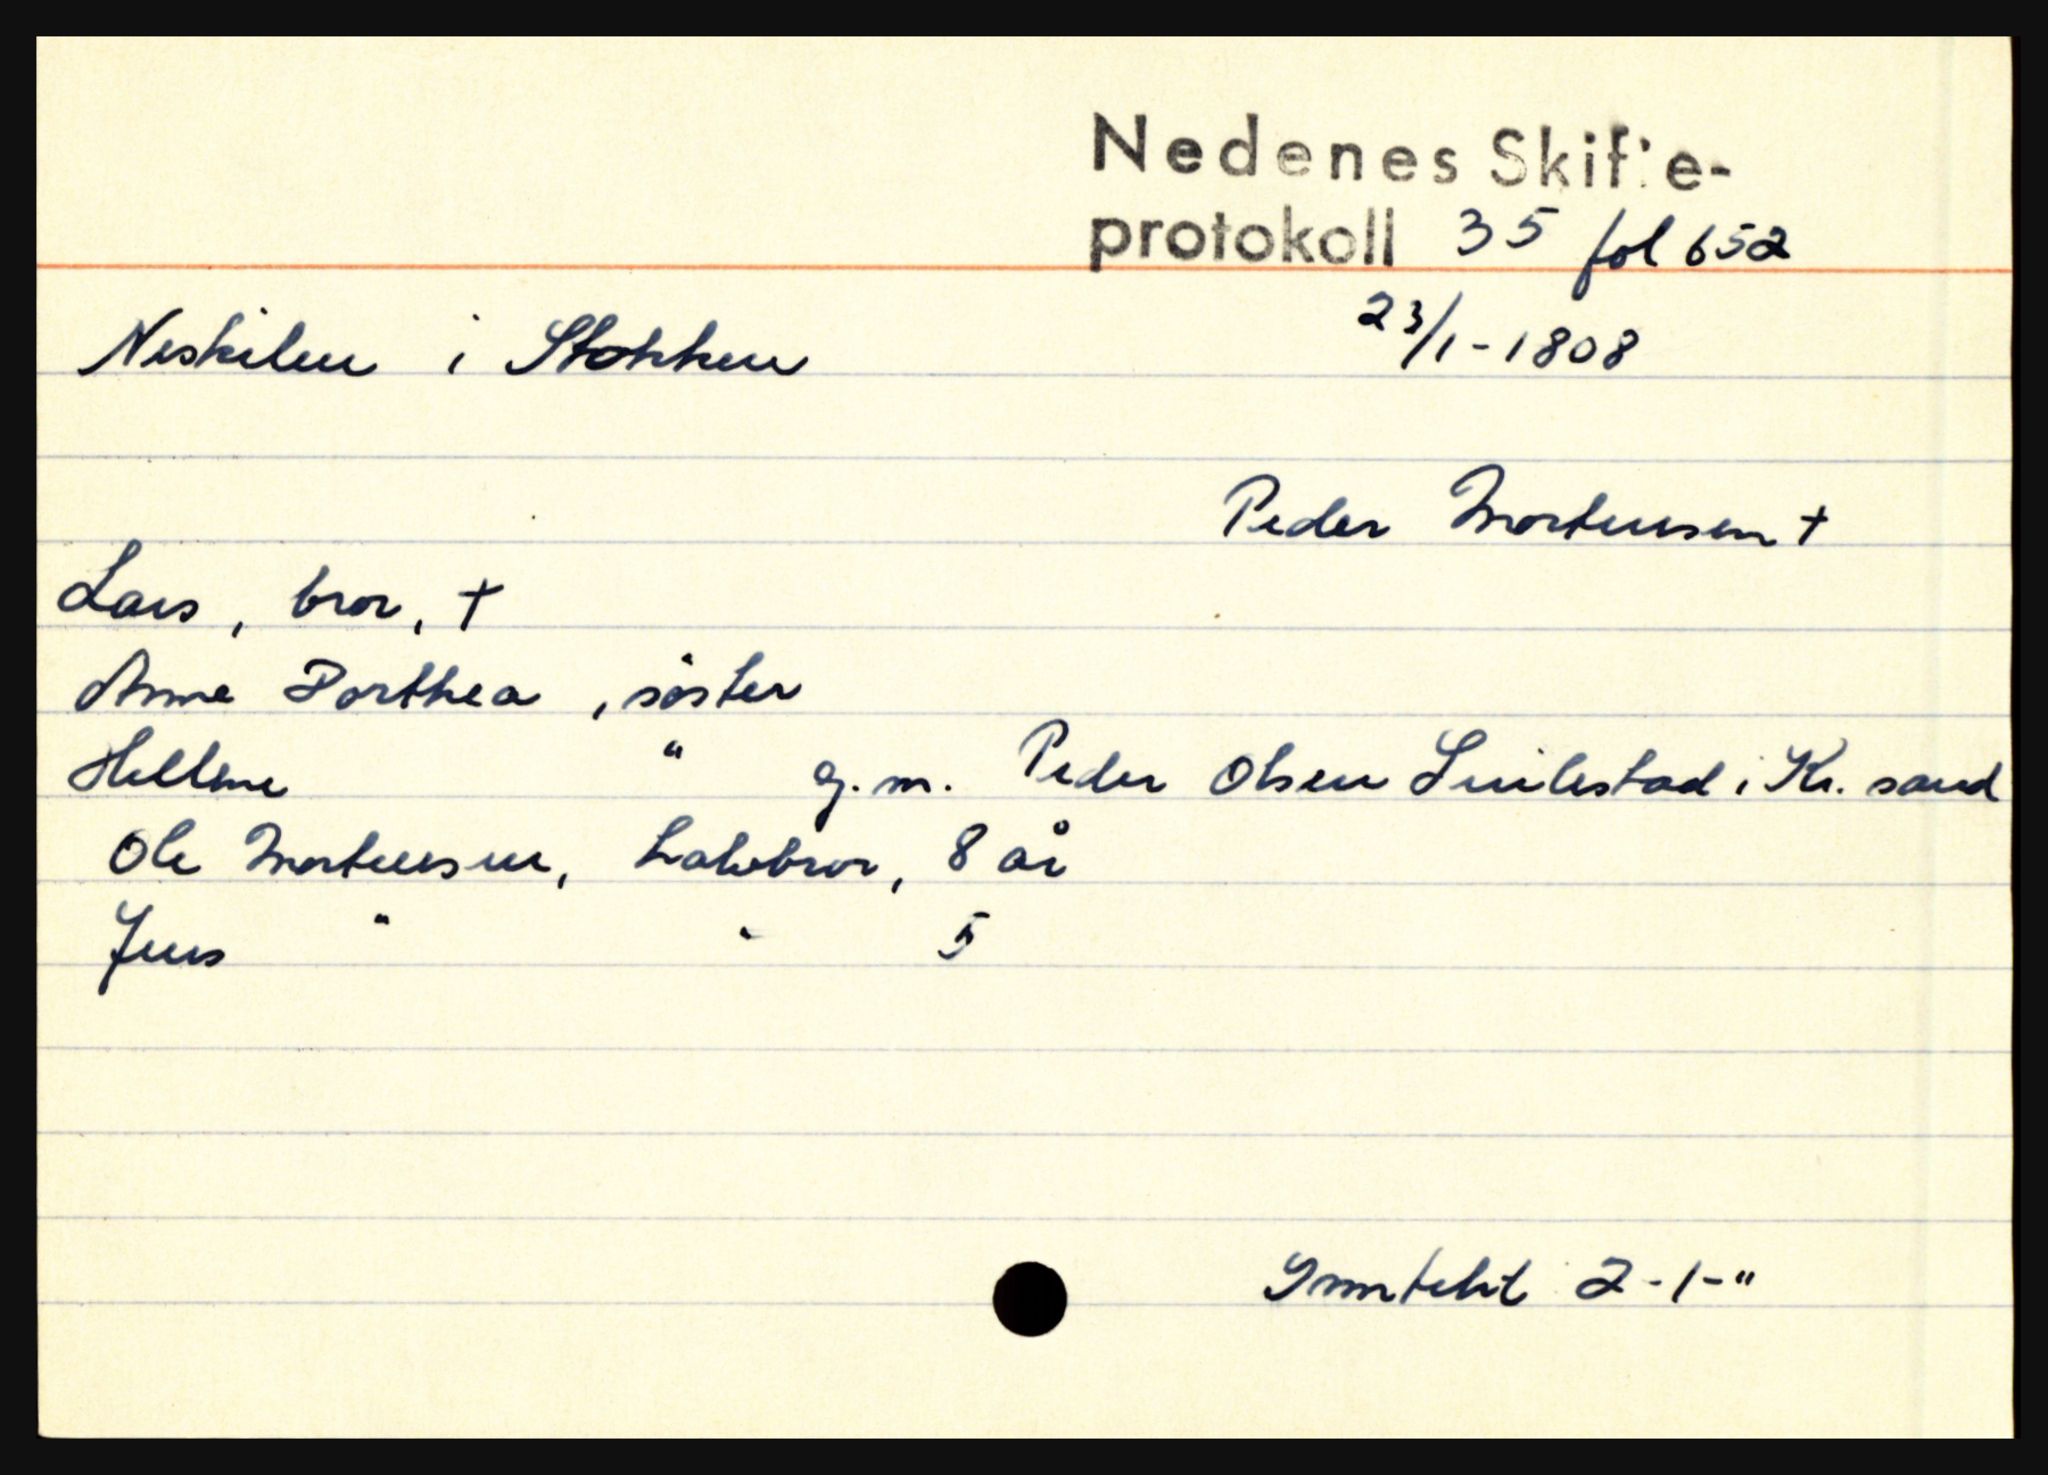 Nedenes Skifte-
protokoll 35 fol 652
Neskilen i Stokken 23/1-1808
Peder Mortensen +
Lars, bror, +
Anne Dorthea, søster
Hellene " g.m. Peder Olsen i Kr. sand
Ole Mortensen, halvbror, 8 år
Jens " " 5
Inntekt 2-1-"